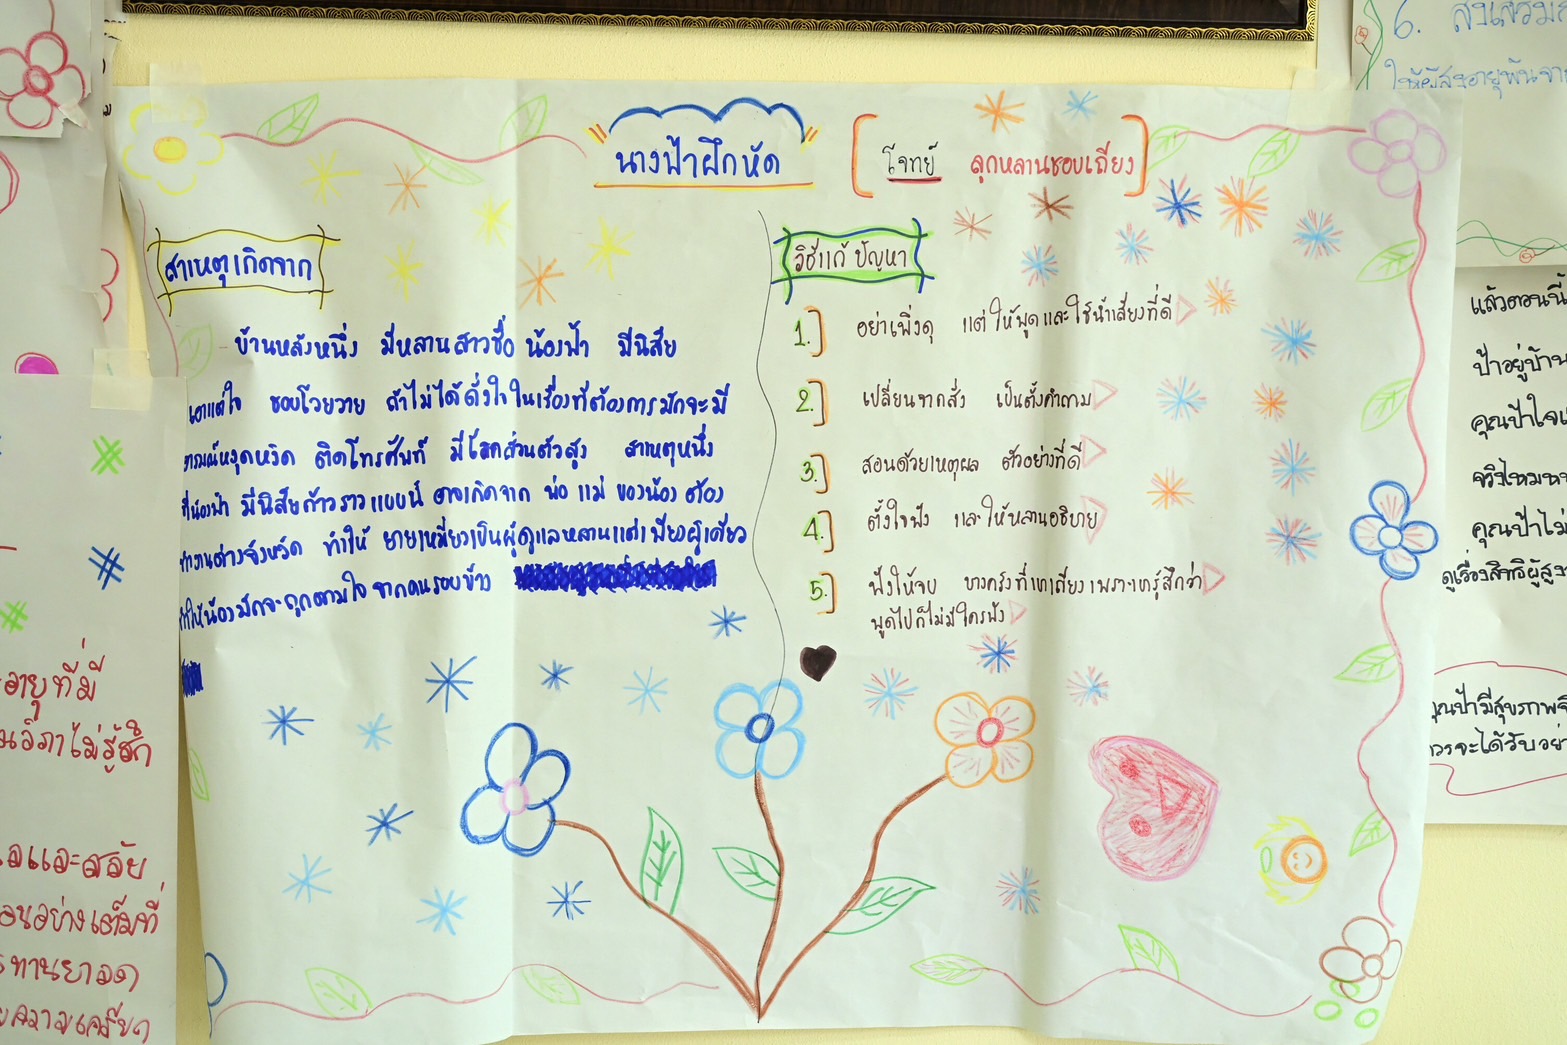 นางฟ้าฝึกหัด
โจทย์ ลูกหลานชอบเถียง
สาเหตุเกิดจาก
บ้านหลังหนึ่ง มีหลานสาวชื่อ น้องฟ้า มีนิสัย
เอาแต่ใจ ชอบโวยวาย ถ้าไม่ได้ดั่งใจในเรื่องที่ต้องการมักจะมี
อารมณ์หงุดหงิด ติดโทรศัพท์ มีโลกส่วนตัวสูง สาเหตุหนึ่ง
ที่น้องฟ้า มีนิสัยก้าวราวแบบนี้ อาจเกิดจาก พ่อ แม่ ของน้อง ต้อง
ทำงานต่างจังหวัด ทำให้ ยายเหมี่ยงเป็นผู้ดูแลหลานแต่เพียงผู้เดียว
ทำให้น้องมักจะถูกตามใจ จากคนรอบข้าง
วิธีแก้ ปัญหา
1. อย่าเพิ่งดุ แต่ ให้พูดและใช้น้ำเสียงที่ดี
2. เปลี่ยนจากสั่ง เป็นตั้งคำถาม
3. สอนด้วยเหตุผล ตัวอย่างที่ดี
4. ตั้งใจฟัง และให้หลานอธิบาย
5. ฟังให้จบ บางครั้งที่เขาเถียงเพราะเขารู้สึกว่า
พูดไปก็ไม่มีใครฟัง
6.
แล้วตอนนี้
ป้าอยู่บ้าน
คุณป้าไม่
อายุที่มี
ไม่รู้สึก